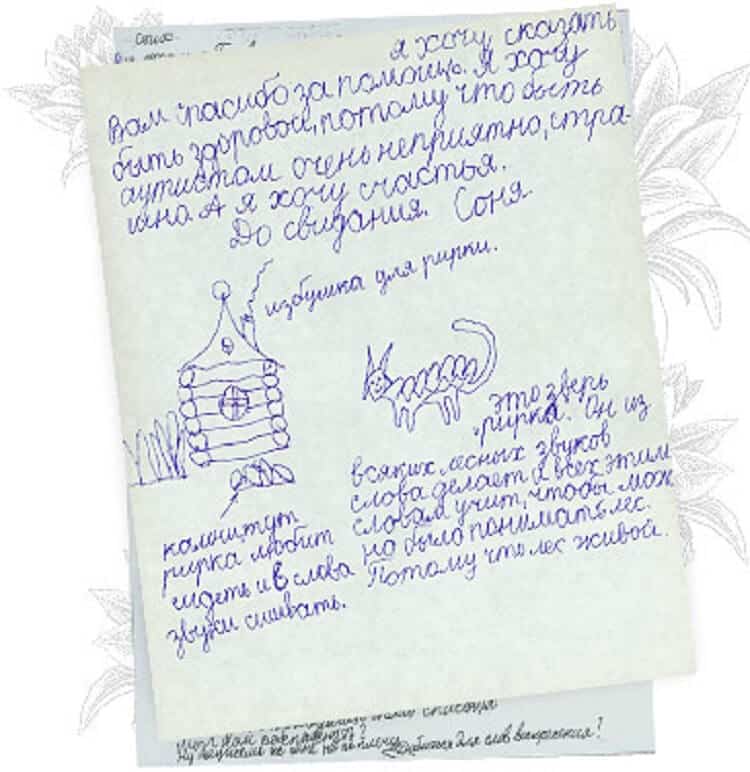 Я хочу сказать
Вам спасибо за помощь. Я хочу
быть здоровой, потому что быть
аутистом очень неприятно, стра-
шно. А я хочу счастья.
До свидания. Соня
избушка для рирки.
это зверь
рирка. Он из
всяких лесных звуков
слова делает и всех этим
словам учит, чтобы мож
но было понимать лес.
Потому что лес живой.
камни тут
рирка любит
сидеть и в слова
звуки сшивать.
для слов воскресения!